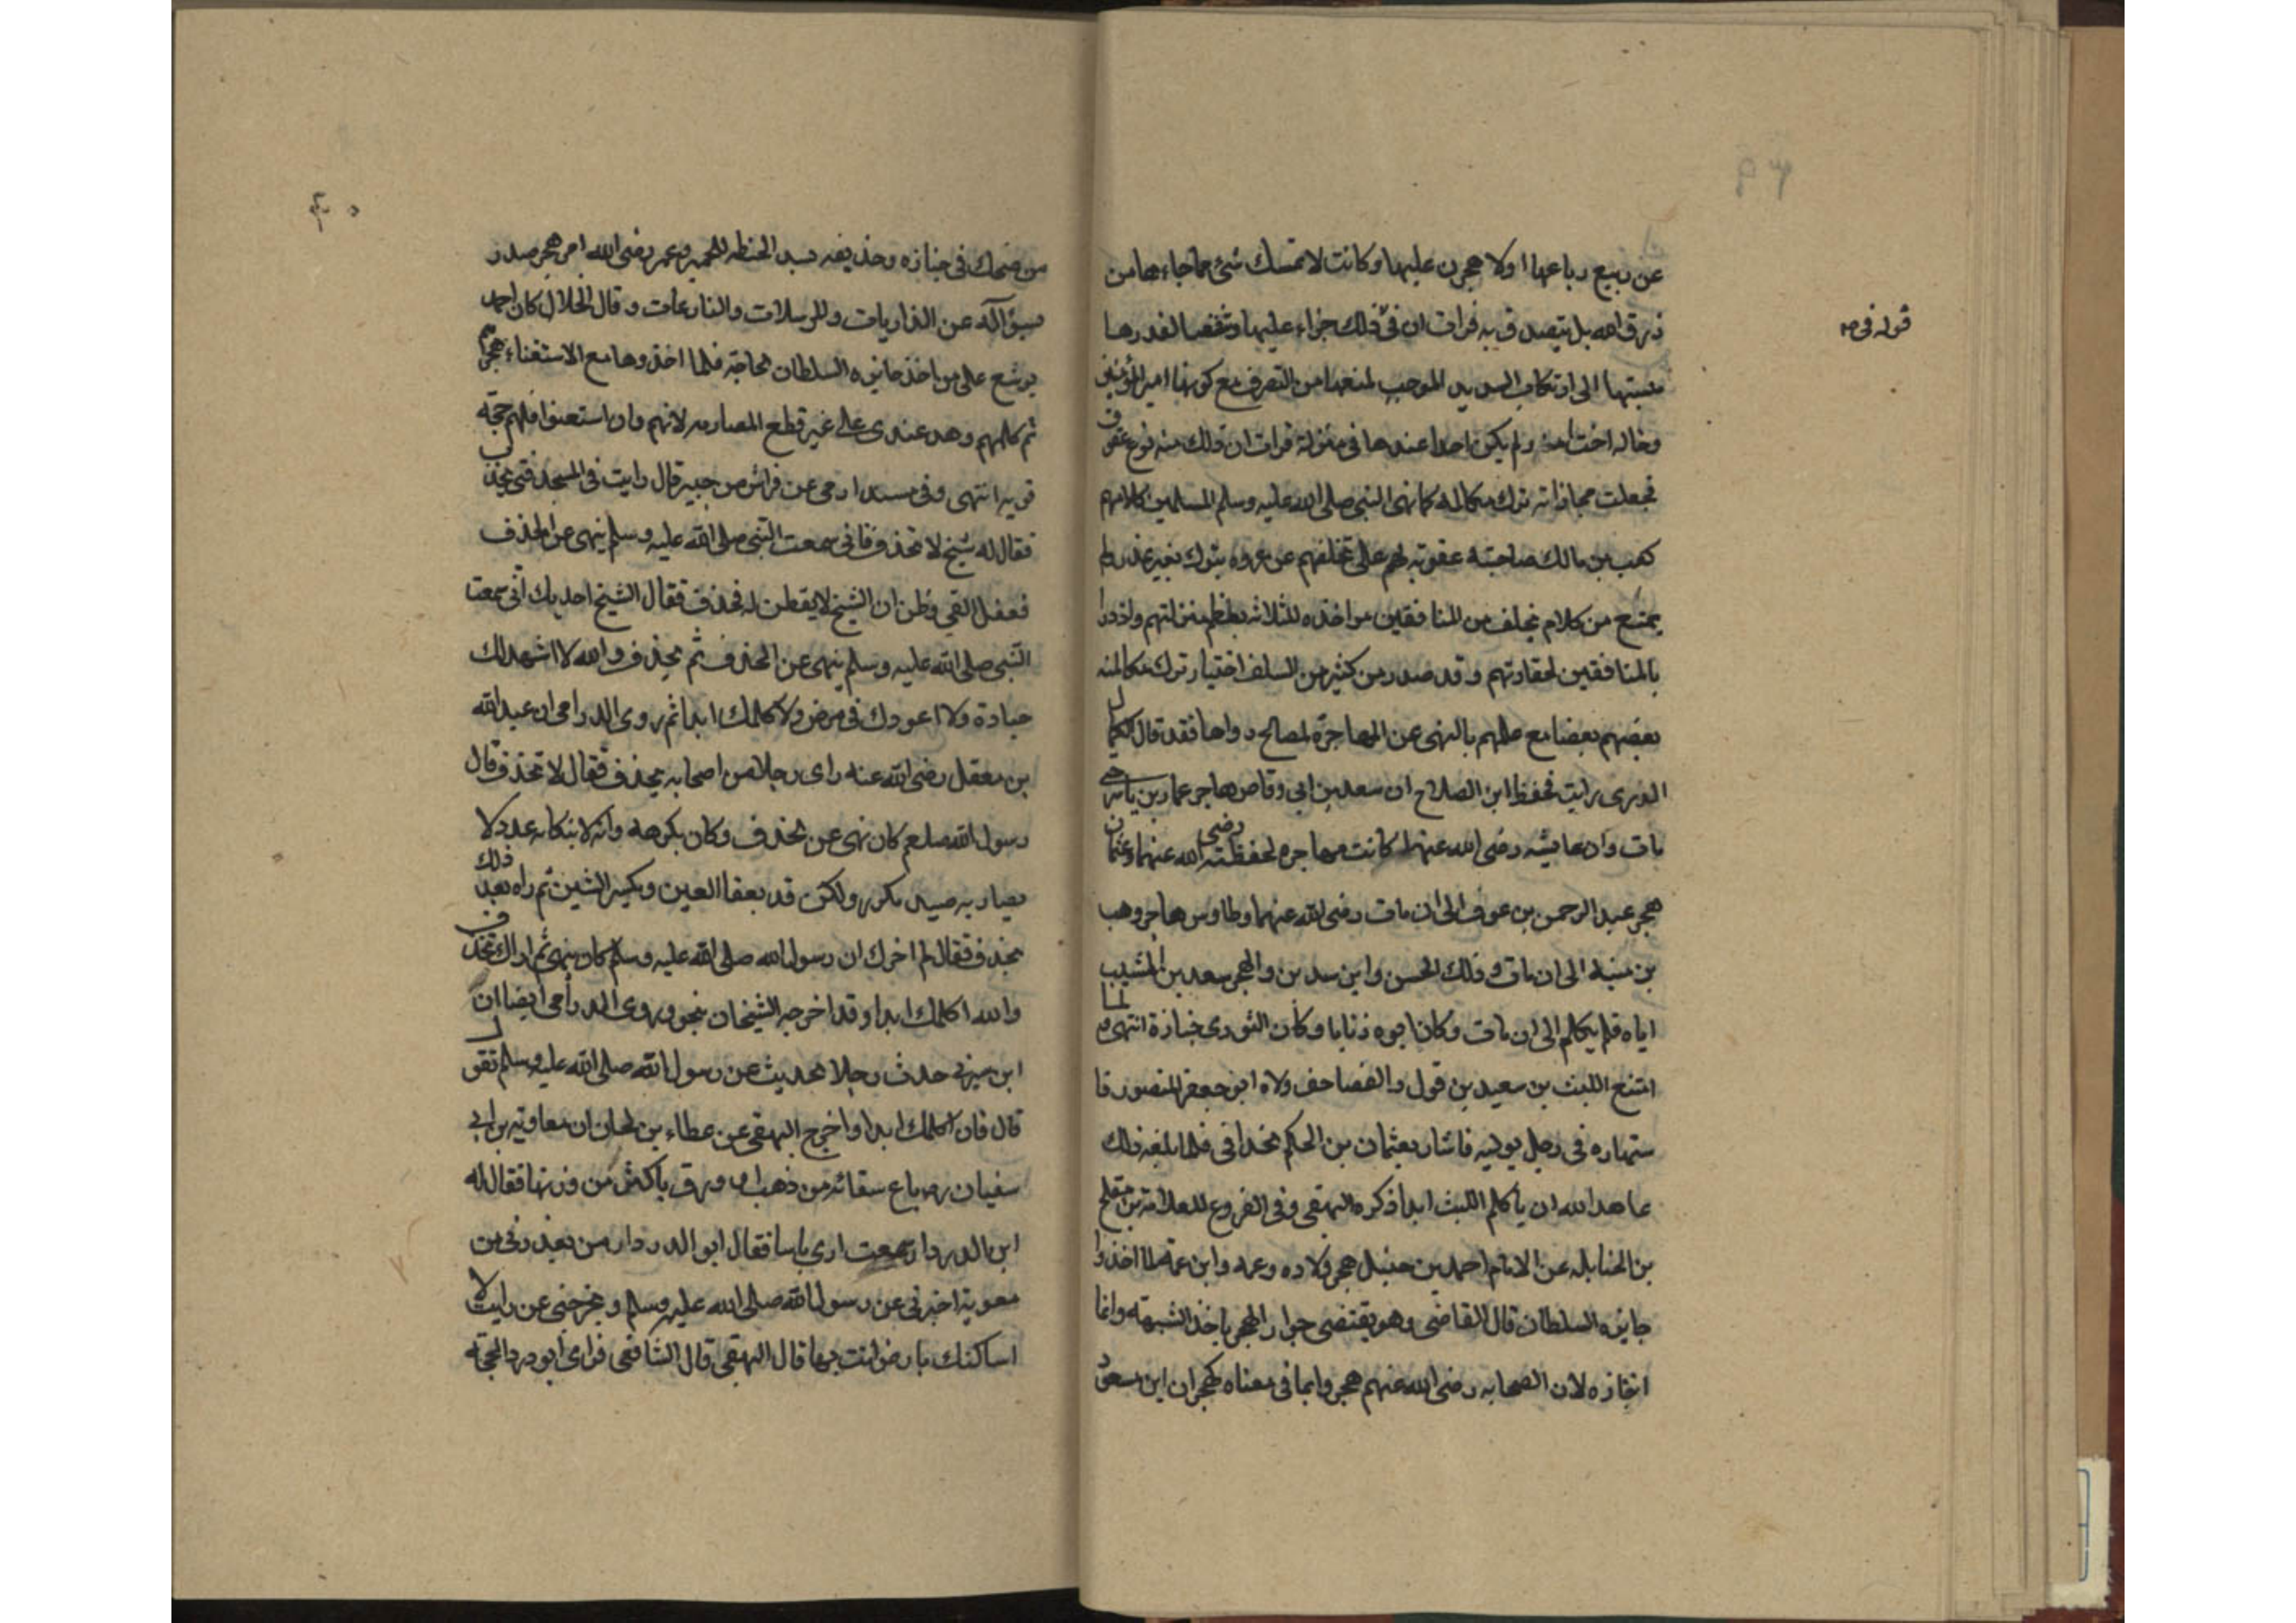 عن ربيع رباعها اولا هجرن عليها وكانت لا تمسك شئ مما جاءها من
رزق الله بل يتصدق به فرات ان في ذلك جزاء عليها وتنقصا لقدرها
قوله في
نسبتها الى ارتكاب الموجب لمنعها من التصرف مع كونها ام المؤمنين
وخاله اخت امه ولم يكن احدا عندها في منزلة فرات ان ذلك منه نوع عقوق
فجعلت مجازاته ترك مكالمه كما نهى النبي صلى الله عليه وسلم المسلمين كلامهم
كعب بن مالك صاحبته عقوبة لهم على تخلفهم عن غزوه تبوك بغير عذر ولم
يمتنع من كلام تخلف من المنافقين مواخذه للثلاثه بعظم منزلتهم وازدرا
بالمنافقين لحقارتهم وقد صدر من كثير من السلف اختيار ترك مكالمته
بعضهم بعضا مع علمهم بالنهى عن المهاجرة لمصالح فقد قال الكمال
رايت بخط ابن الصلاح ان سعد بن ابى وقاص هاجر عمار بن ياسر حتى
مات وان عايشه رضى الله عنها كانت مهاجره لحفظته رضى الله عنهما وعثمان
هجر عبد الرحمن بن عوف الى ان مات رضى الله عنهما وطاوس هاجر وهب
بن منبه الى ان مات وذلك الحسن وابن سد بن والهجر سعد بن المسيب
اياه فلم يكلم الى ان مات وكان ابوه زناتا وكان الثورى انتهى ولما
امتنع الليث بن سعيد بن قول ولاه ابو جعفر المنصور فا
ستهاره فى رجل يوليه فاشار بعثمان بن الحكم فلما بلغه ذلك
عاهد الله ان يا كلم الليث ابدا ذكره البهقى وفى الفروع للعلامة بن مفلح
بن الحنابله عن الامام احمد بن حنبل هجر ولاده وعمه وابن عمه لما اخذوا
جايزه السلطان قال القاضى وهو يقتضى جوار الهجر باخذ الشبهته وانما
لان الصحابه رضى الله عنهم هجروا بما فى معناه كهجران ابن مسعود
من ضحك فى جنازه وحذيفه وعمر رضى الله امر هجر صدر
عن الذاريات والمرسلات والنازعات وقال الخلال كان احمد
يوشع على من اخذ جايزه السلطان لحاجته فلما اخذوها مع الاستغناء هجرهم
ثم كلمهم وهد عندى على غير قطع المصارمه لانهم وان استعنوا فلهم حجة
قويه انتهى وفى مسند ارمى عن فراش من جبير قال رايت فى المسجد فتى يخذف
فقال له شيخ لا تخذف فانى سمعت النبى صلى الله عليه وسلم ينهى عن الخذف
فغفل الفتى وظن ان الشيخ لا يفطن له فخذف فقال الشيخ احدثك انى سمعت
النبى صلى الله عليه وسلم ينهى عن الخذف ثم تخذف والله لا اشهد لك
جنازة ولا اعودك فى مرض ولا كلمك ابدا ثم روى الدرامى ان عبد الله
بن معقل رضى الله عنه راى رجلا من اصحابه يخذف فقال لا تخذف قال
رسول الله صلعم كان نهى عن تخذف وكان يكرهه وانه لا ينكابه عدد كلا
يصاد به صيد ولكن قد يعقا العين ويكسر السن ثم راه بعد ذلك
يخذف فقال لم اخبرك ان رسول الله صلى الله عليه وسلم كان ينهى ثم اراك تخذف
والله اكلمك ابدا وقد اخرجه الشيخان بنحو وروى الدرامى ايضا ان
ابن سيرين حدث رجلا بحديث عن رسول الله صلى الله عليه وسلم
قال فان اكلمك ابدا واخرج البهقى عن عطاء بن ان معاوية بن ابى
سفيان باع سقائه من ذهب او ورق باكثر من وزنها فقال له
ابن الدردا سمعت ارى باسا فقال ابو الدردار من يعذرنى من
معوية اخبرنى عن رسول الله صلى الله عليه وسلم عن رايت لا
اساكنك بارض انت بها قال البهقى قال الشافعى فراى ابو دردا الحجة